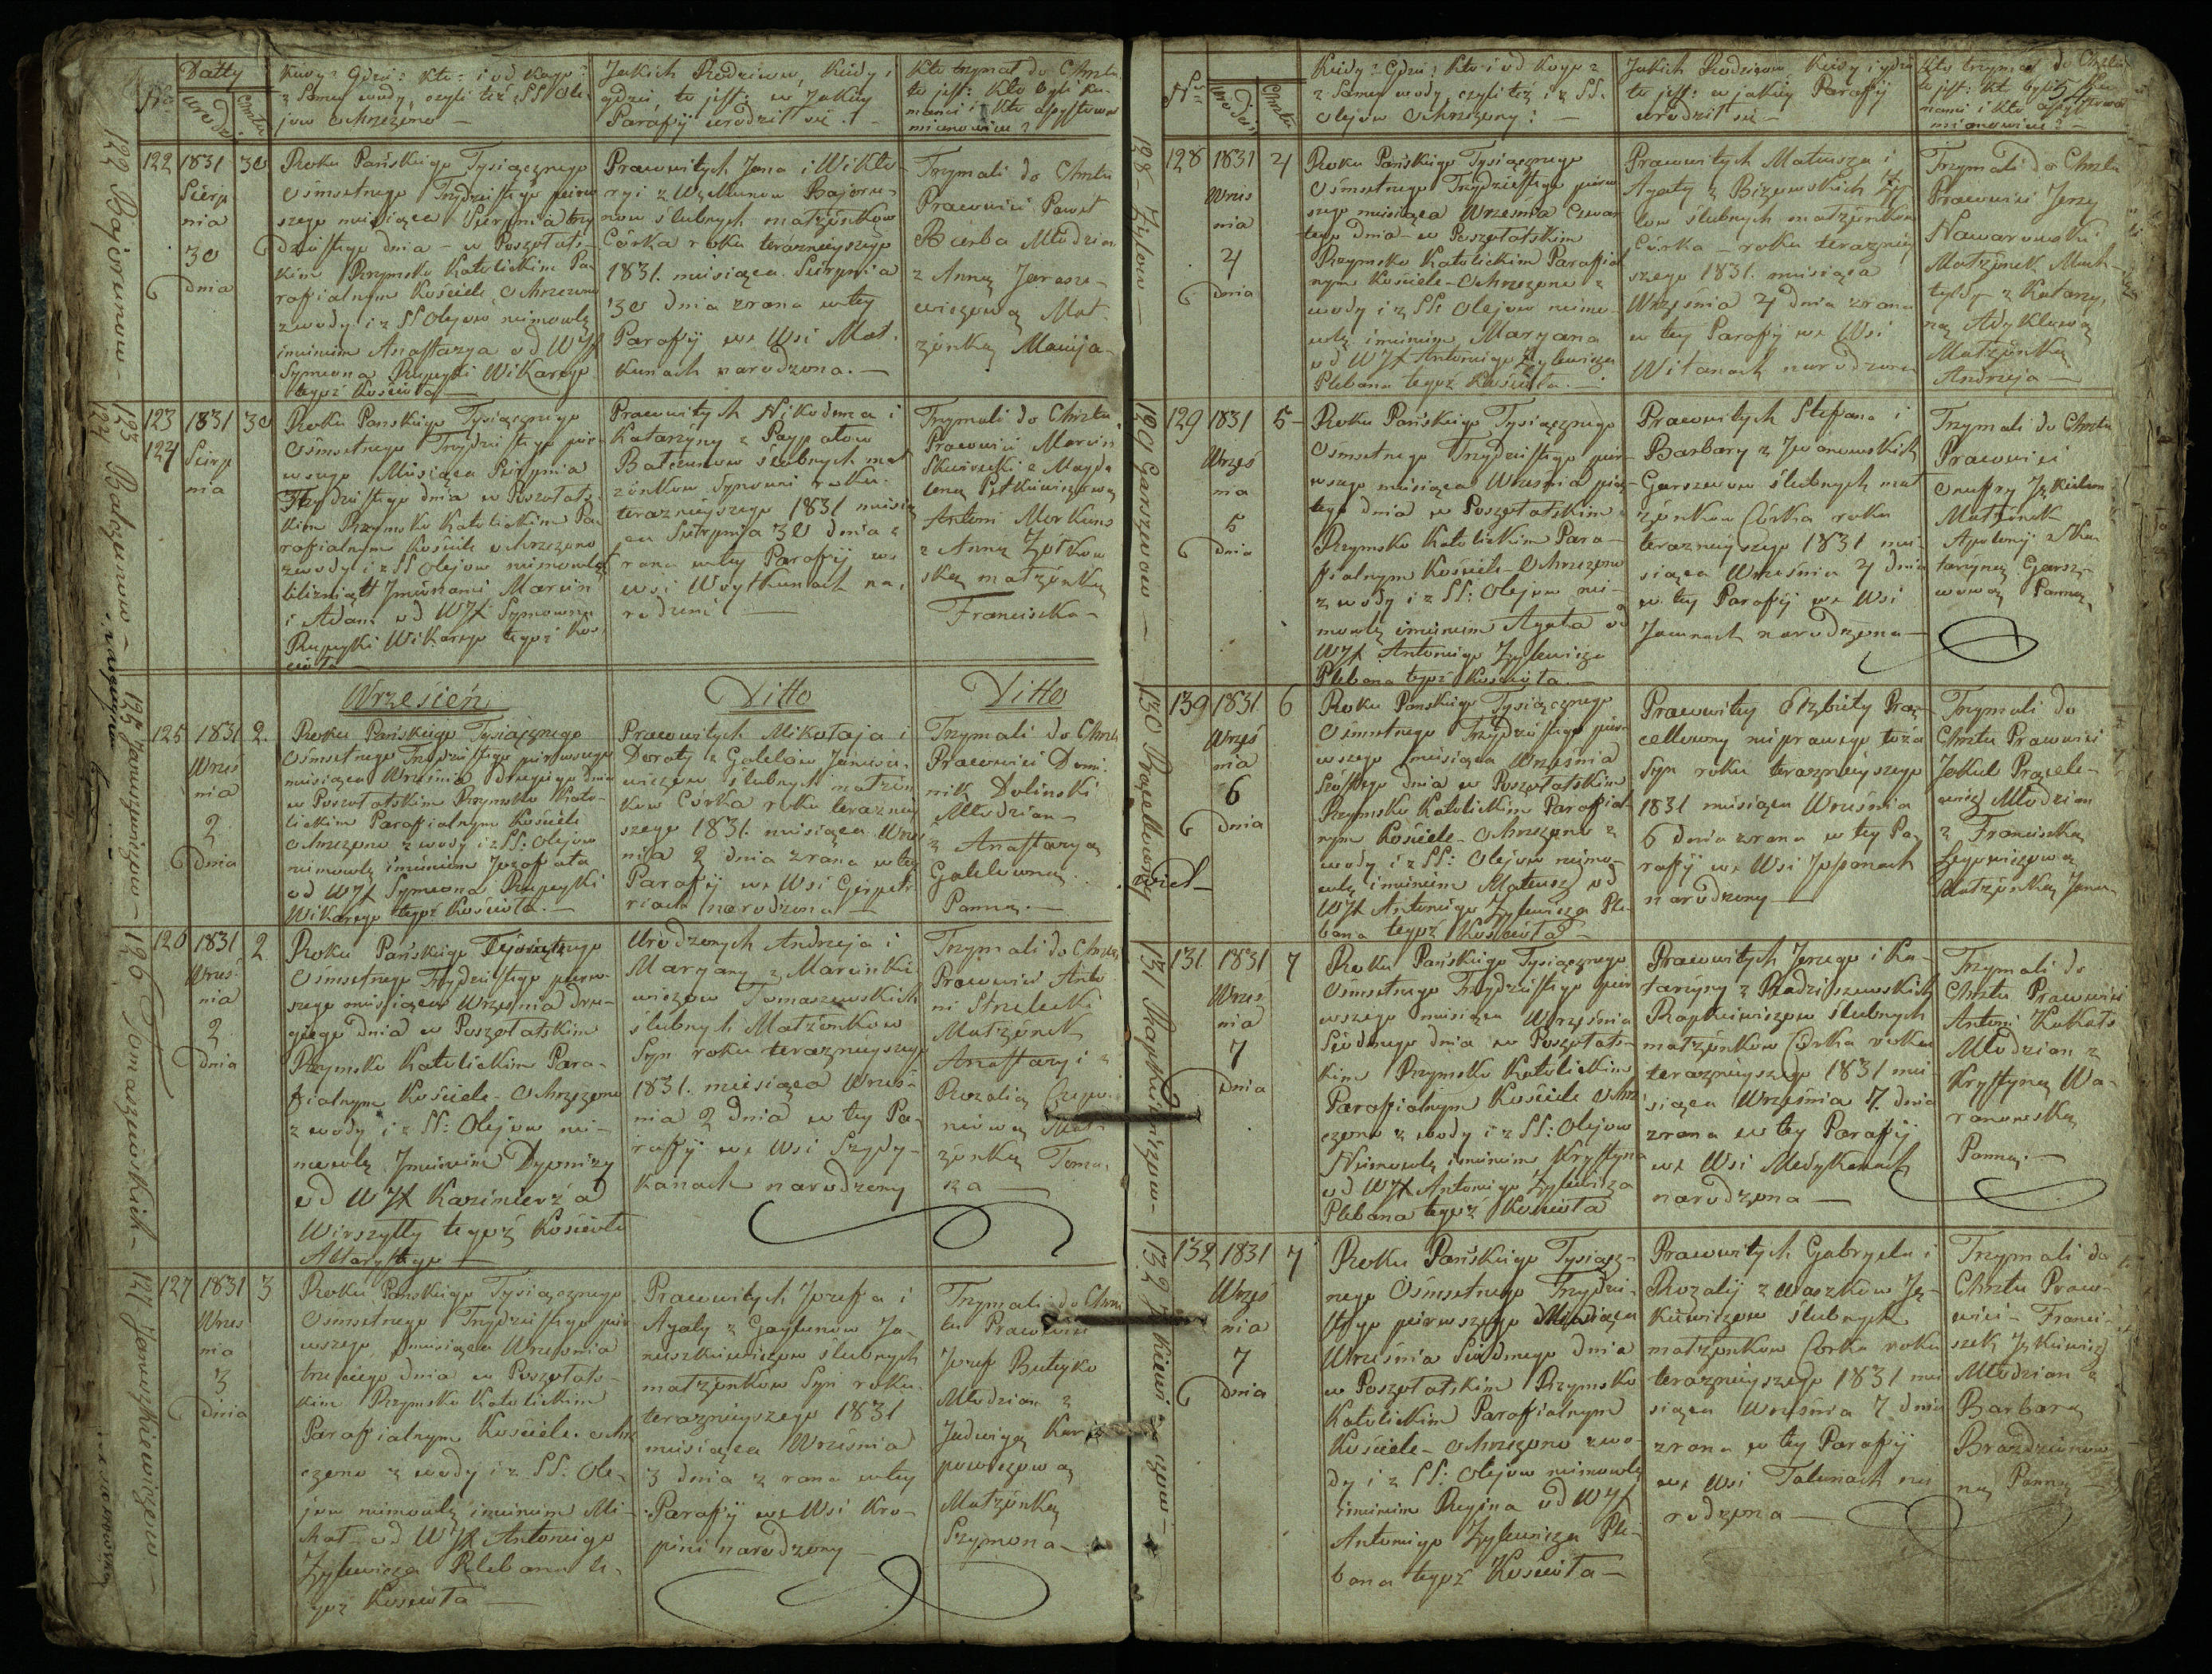 Nro
Datty
urodz:
Chrztu
Kiedy? Gdzie? Kto? i od Kogo?
z samey wody, czyli też z SS Ole-
jow ochrzczono —
Jakich Rodziców, Kiedy i
gdzie, to jest: w Jakiey
Parafij urodził się? —
Kto trzymał do Chrztu,
to jest: Kto byli Ku-
mami i Kto assystował
mianowicie?
122 Bajorunow —
122
1831
Sierp
nia
30
dnia
30
Roku Pańskiego Tysiącznego
Ośmsetnego Trzydziestego pierw
szego miesiąca Sierpnia trzy
dziestego dnia — w Poszołats-
kim Rzymsko Katolickim Pa-
rafialnym Kościele, Ochrzczono
z wody i z SS Olejow niemowlę
imieniem Anastazya od WJX
Symeona Rupeyki Wikarego
tegoż Kościoła —
Prawowitych Jana i Wikto-
ryi z Użełunow Bajoru-
now ślubnych małżonkow
Córka roku teraznieyszego
1831. miesiąca Sierpnia
30 dnia zrana w tey
Parafij we Wsi Mat-
kunach narodzona. —
Trzymali do Chrztu
Prawowici Paweł
Bierba Młodzian
z Anną Jarasze-
wiczową Mał-
żonką Macieja —
123 Bałczunow —
124
123
124
1831
Sierp
nia
30
Roku Pańskiego Tysiącznego
Ośmsetnego Trzydziestego pier-
wszego Miesiąca Sierpnia
Trzydziestego dnia w Poszołats-
kim Rzymsko Katolickim Pa-
rafialnym Kościele ochrzczono
z wody i z SS Olejow niemowlęt
bliźniąt Imionami Marcin
i Adam od WJX Symeona
Rupeyki Wikarego tegoż Koś-
cioła —
Prawowitych Nikodema i
Katarzyny z Paypałow
Bałczunow ślubnych mał
żonkow Synowie roku
teraznieyszego 1831 miesią
ca Sierpnia 30 dnia z
rana w tey Parafij we
wsi Woytkunach na-
rodzeni —
Trzymali do Chrztu
Prawowici Marcin
Skurewski z Magda
leną Pietkiewiczową
Antoni Morkuns
z Anną Żółkow
ską małżonką
Franciszka —
Wrzesień
Ditto
Ditto
125 Januszewiczow —
125
1831
Wrześ
nia
2
dnia
2.
Roku Pańskiego Tysiącznego
Ośmsetnego Trzydziestego pierwszego
miesiąca Września Drugiego dnia
w Poszołatskim Rzymsko Kato-
lickim Parafialnym Kościele
Ochrzczono z wody i z SS: Olejow
niemowlę imieniem Jozefata
od WJX Symeona Rupeyki
Wikarego tegoż Kościoła. —
Prawowitych Mikołaja i
Doroty z Galelow Janusze-
wiczow ślubnych małżon
kow Córka roku teraźniey
szego 1831. miesiąca Wrześ
nia 2 dnia zrana w tey
Parafij we Wsi Gierpet-
riach narodzona —
Trzymali do Chrztu
Prawowici Domi-
nik Doliński
Młodzian —
z Anastazyą
Galelewną
Panną. —
126 Tomaszewskich —
126
1831
Wrześ
nia
2
dnia
2
Roku Pańskiego Tysiącznego
Ośmsetnego Trzydziestego pierw-
szego miesiąca Września dru-
giego dnia w Poszołatskim
Rzymsko Katolickim Para-
fialnym Kościele — Ochrzczono
z wody i z SS: Olejow nie-
mowlę Imieniem Dyonizy
od WJX Kazimierza
Wirszyłły tegoż Kościoła
Altarysty —
Urodzonych Andrzeja i
Maryany z Marcinkie-
wiczow Tomaszewskich
ślubnych Małżonkow
Syn roku teraznieyszego
1831. miesiąca Wrześ-
nia 2 dnia w tey Pa-
rafij we Wsi Szydy-
kanach narodzony
Trzymali do Chrztu
Prawowici Anto
ni Strzelecki
Małżonek
Anastazyi z
Rozalią
Mał-
żonką Toma-
sza —
127 Januszkiewiczow —
127
1831
Wrześ
nia
3
dnia
3
Roku Pańskiego Tysiącznego
Ośmsetnego Trzydziestego pier
wszego, miesiąca Września
trzeciego dnia w Poszołats-
kim Rzymsko Katolickim
Parafialnym Kościele. ochrz
czono z wody i z SS: Ole-
jow niemowlę imieniem Mi-
chał — od WJX Antoniego
Żylewicza Plebana te-
goż Kościoła —
Prawowitych Jozefa i
Agaty z Gaylunow Ja-
nuszkiewiczow ślubnych
małżonkow Syn roku
teraznieyszego 1831
miesiąca Września
3 dnia z rana w tey
Parafij we Wsi Kro-
pini narodzony —
Trzymali do Chrz
tu Prawowici
Jozef Butejko
Młodzian z
Jadwigą Kar
powiczową
Małżonką
Szymona —
Nro
urodz:
Chrztu
Kiedy? Gdzie? Kto i od Kogo?
z samey wody, czyli też i z SS.
Olejow Ochrzczony? —
Jakich Rodziców Kiedy i gdzie
to jest: w jakiey Parafij
urodził się —
Kto trzymał do Chrztu
to jest: Kto byli Ku-
mami i Kto assystował
mianowicie? —
128 — Żylow —
128
1831
Wrześ
nia
4
dnia
4
Roku Pańskiego Tysiącznego
Ośmsetnego Trzydziestego pierw
szego miesiąca Września Czwar
tego dnia — w Poszołatskim
Rzymsko Katolickim Parafial
nym Kościele — Ochrzczono z
wody i z SS: Olejow niemo-
wlę imieniem Maryana
od WJX Antoniego Żylewicza
Plebana tegoż Kościoła. —
Prawowitych Mateusza i
Agaty z Bizewskich Ży
low ślubnych małżonkow
Córka — roku teraźniey
szego 1831. miesiąca
Września 4 dnia zrana
w tey Parafij we Wsi
Witanach narodzona
Trzymali do Chrztu
Prawowici Jerzy
Nawarowski
Małżonek Mach-
tyldy z Katarzy-
ną Adyklewą
Małżonką
Andrzeja —
129 Garszwow —
129
1831
Wrześ
nia
5
dnia
5 —
Roku Pańskiego Tysiącznego
Ośmsetnego Trzydziestego pier-
wszego miesiąca Września pią-
tego dnia w Poszołatskim
Rzymsko Katolickim Para-
fialnym Kościele — Ochrzczono
z wody i z SS: Olejow nie-
mowlę imieniem Agata od
WJX Antoniego Żylewicza
Plebana tegoż Kościoła. —
Prawowitych Stefana i
Barbary z Jwanowskich
Garszwow ślubnych mał
żonkow Córka roku
teraznieyszego 1831 mie
siąca Września 4 dnia
w tey Parafij we Wsi
Jawnach narodzona —
Trzymali do Chrztu
Prawowici
Onufry
Małżonek
Apolonij z Ka-
tarzyną Garsz-
wową Panną
130
130
1831
Wrześ
nia
6
dnia
6
Roku Pańskiego Tysiącznego
Ośmsetnego Trzydziestego pier-
wszego miesiąca Września
Szóstego dnia w Poszołatskim
Rzymsko Katolickim Parafial-
nym Kościele — Ochrzczono z
wody i z SS: Olejow niemo-
wlę imieniem Mateusz od
WJX Antoniego Żylewicza Ple-
bana tegoż Kościoła —
Prawowitey Elżbiety
nieprawego łoża
Syn roku teraznieyszego
1831 miesiąca Września
6 dnia zrana w tey Pa-
rafij we Wsi Juszanach
narodzony —
Trzymali do
Chrztu Prawowici
Jakub
Młodzian
z Franciszką
Małżonką Jana —
131 Rapkiewiczow —
131
1831
Wrześ
nia
7
dnia
7
Roku Pańskiego Tysiącznego
Ośmsetnego Trzydziestego pier
wszego miesiąca Września
Siódmego dnia w Poszołats-
kim Rzymsko Katolickim
Parafialnym Kościele Ochrz
czono z wody i z SS: Olejow
Niemowlę imieniem Krystyna
od WJX Antoniego Żylewicza
Plebana tegoż Kościoła
Prawowitych Jerzego i Ka-
tarzyny z Radziszewskich
Rapkiewiczow ślubnych
małżonkow Córka roku
teraznieyszego 1831 mie-
siąca Września 7. dnia
zrana w tey Parafij
we Wsi Medykanach
narodzona —
Trzymali do
Chrztu Prawowici
Antoni Kukałs
Młodzian z
Krystyną Wa-
ranowską
Panną. —
132
132
1831
Wrześ
nia
7
dnia
7
Roku Pańskiego Tysiącz-
nego Ośmsetnego Trzydzie-
stego pierwszego Miesiąca
Września Siódmego dnia
w Poszołatskim Rzymsko
Katolickim Parafialnym
Kościele — Ochrzczono z wo-
dy i z SS: Olejow niemowlę
imieniem Regina od WJX
Antoniego Żylewicza Ple-
bana tegoż Kościoła —
Prawowitych Gabryela i
Rozalij z Waszkow Ję-
kiewiczow ślubnych
małżonkow Córka roku
teraznieyszego 1831 mie
siąca Września 7 dnia
zrana w tey Parafij
we Wsi Talunach na
rodzona —
Trzymali do
Chrztu Prawo-
wici — Franci-
szek Jękiewicz
Młodzian z
Barbarą
Brazdziunow
ną Panną —